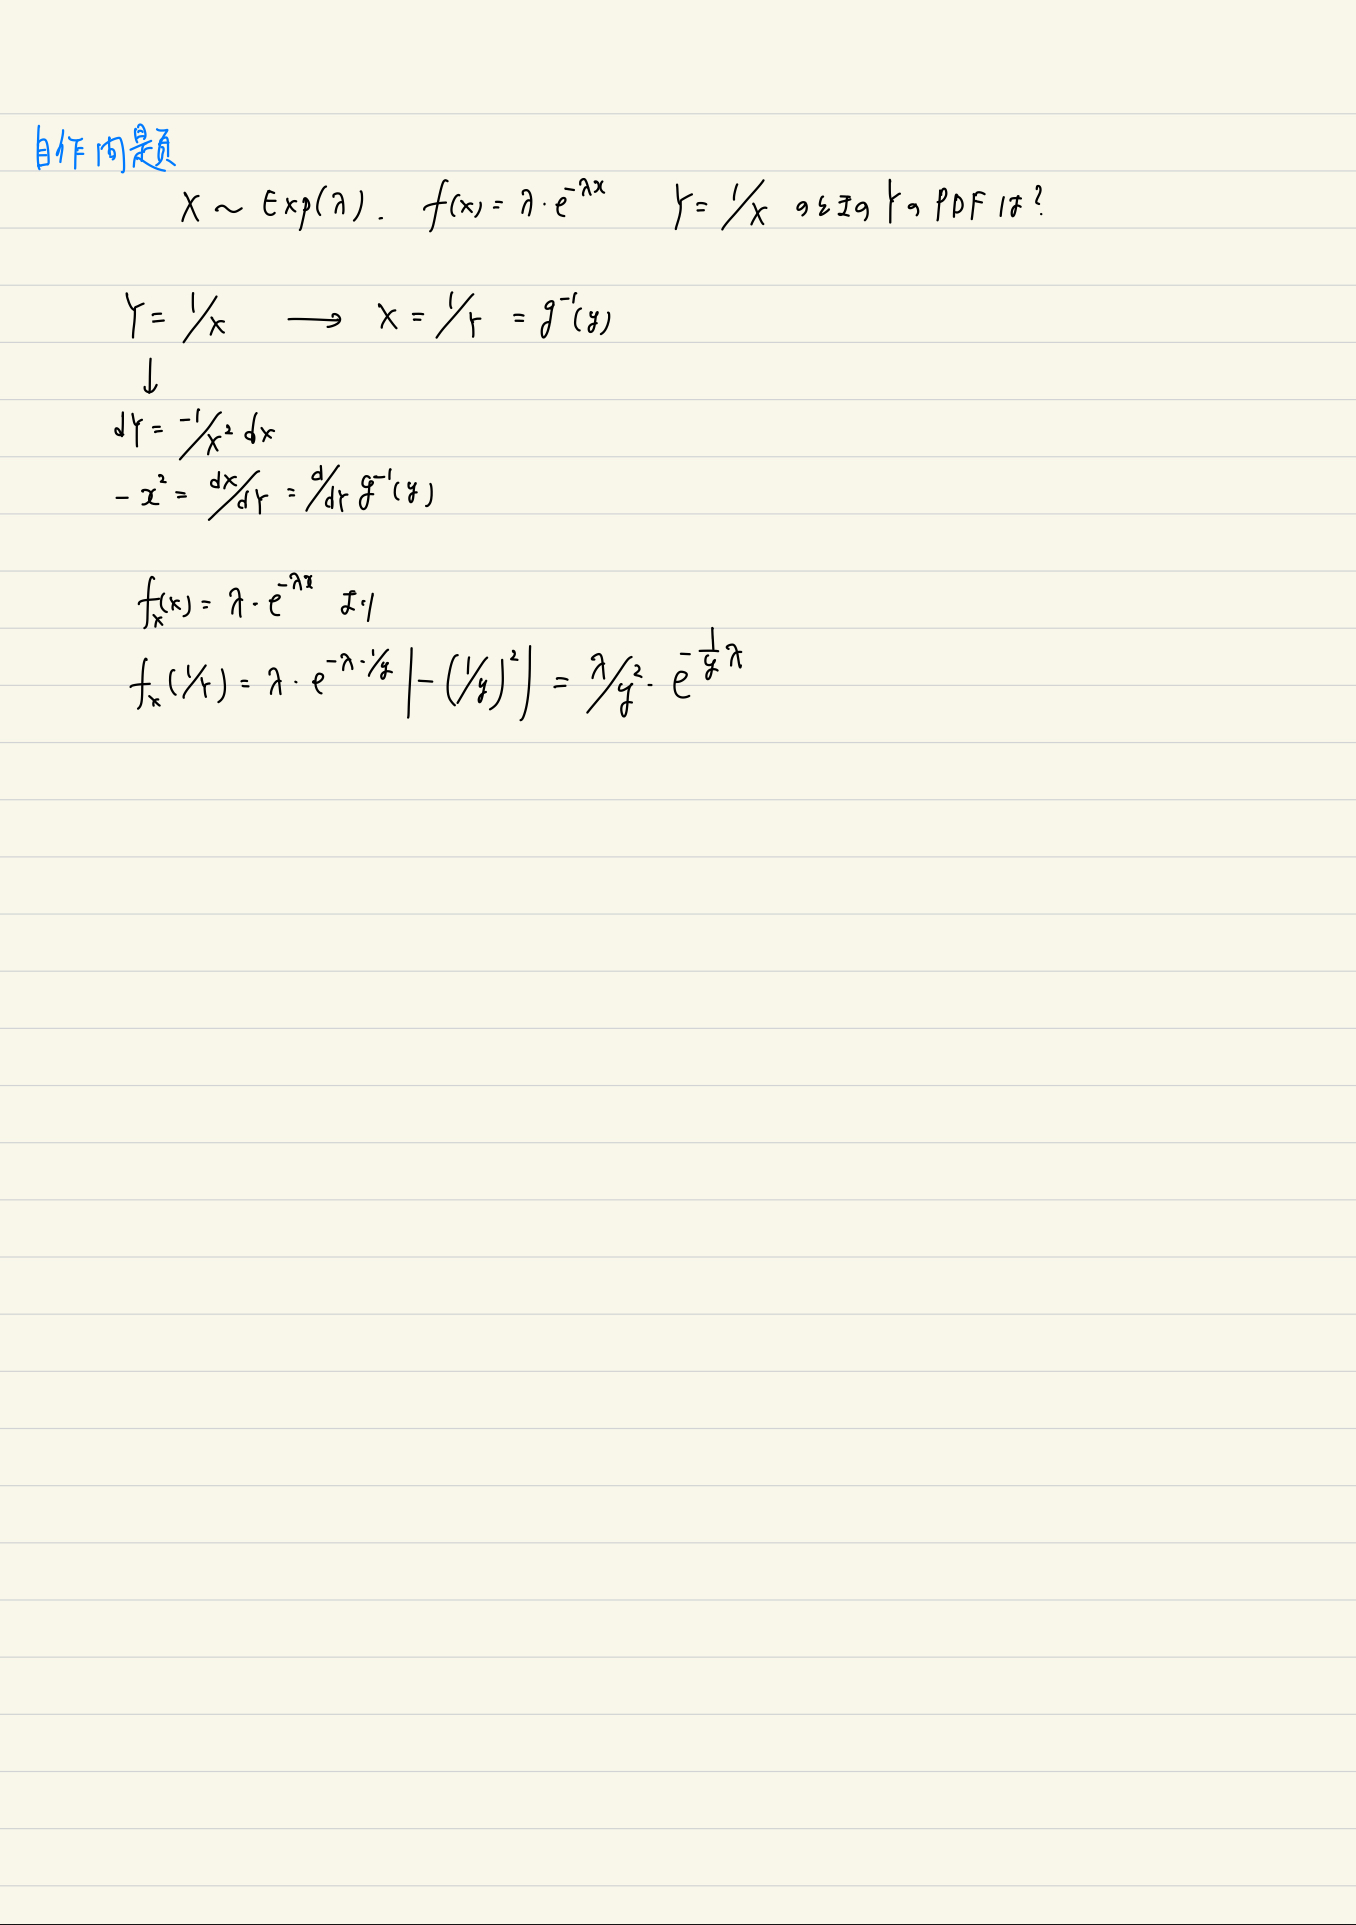 自作問題
X ~ Exp(λ). f(x) = λ・e^{-λx} Y = 1/X のときのYのPDFは?
Y = 1/X → X = 1/Y = g^{-1}(y)
↓
dY = -1/X² dx
- x² = dx/dY = d/dY g^{-1}(y)
f_x(x) = λ・e^{-λx} より
f_x(1/Y) = λ・e^{-λ・1/y} |-(1/y)²| = λ/y²・e^{-\frac{1}{y}λ}